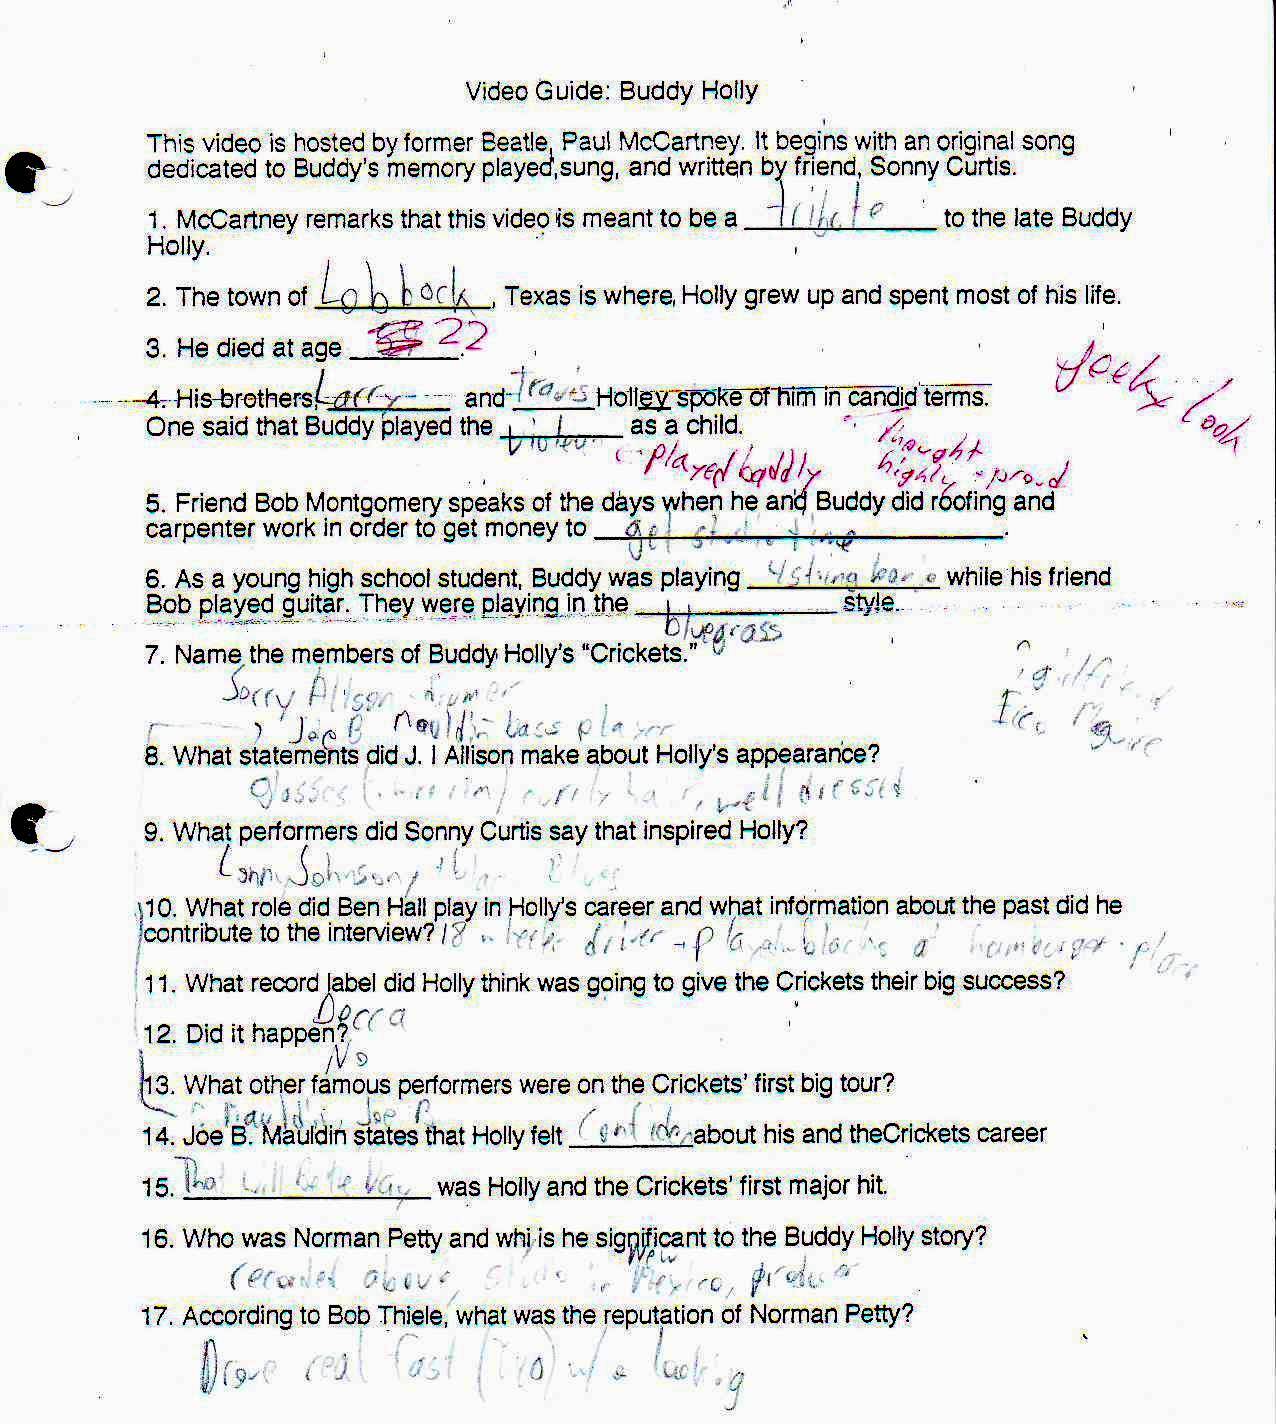 Video Guide: Buddy Holly
This video is hosted by former Beatle, Paul McCartney. It begins with an original song
dedicated to Buddy's memory played,sung, and written by friend, Sonny Curtis.
1. McCartney remarks that this video is meant to be a tribute to the late Buddy
Holly.
2. The town of Lobbock, Texas is where Holly grew up and spent most of his life.
3. He died at age 22.
4. His brothers, Larry and Travis Holley spoke of him in candid terms.
geeky look
One said that Buddy played the violin as a child.
- played baddly
thought
highly - proud
5. Friend Bob Montgomery speaks of the days when he and Buddy did roofing and
carpenter work in order to get money to get studio time.
6. As a young high school student, Buddy was playing 4 string banjo while his friend
Bob played guitar. They were playing in the bluegrass style.
7. Name the members of Buddy Holly's "Crickets."
Jerry Allison - drumer
Joe B Mauldin bass player
girlfriend
8. What statements did J. I Allison make about Holly's appearance?
glasses (wire rim) curly hair, well dressed
9. What performers did Sonny Curtis say that inspired Holly?
Lonny Johnson, Blues
10. What role did Ben Hall play in Holly's career and what information about the past did he
contribute to the interview? 18 wheeler driver - played hamburger place
11. What record label did Holly think was going to give the Crickets their big success?
Decca
12. Did it happen?
No
13. What other famous performers were on the Crickets' first big tour?
Mauldin, Joe B
14. Joe B. Mauldin states that Holly felt Confiden about his and theCrickets career
15. That will be the day was Holly and the Crickets' first major hit.
16. Who was Norman Petty and why is he significant to the Buddy Holly story?
recorded above, studio in New Mexico, producer
17. According to Bob Thiele, what was the reputation of Norman Petty?
Drove real fast w/o looking